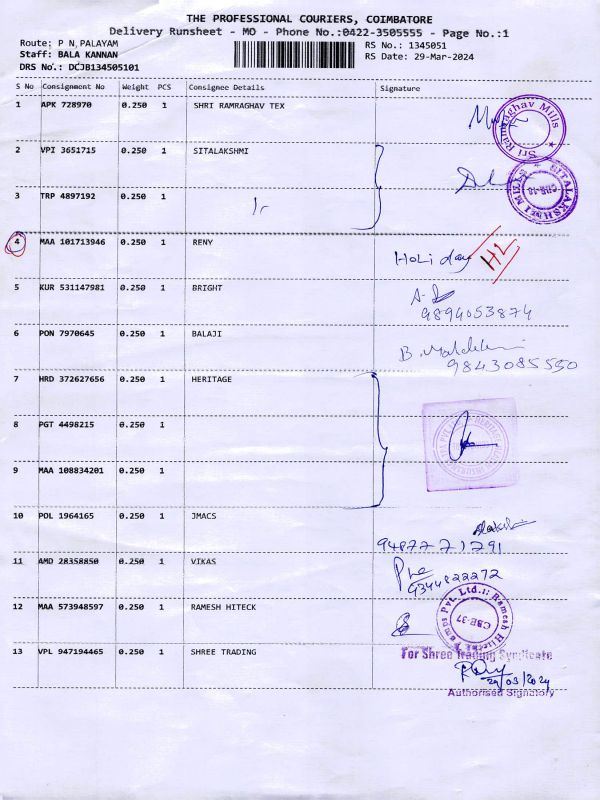 THE PROFESSIONAL COURIERS, COIMBATORE
Delivery Runsheet - MO - Phone No.:0422-3505555 - Page No.:1
Route: P N PALAYAM
RS No.: 1345051
Staff: BALA KANNAN
RS Date: 29-Mar-2024
DRS No.: DCJB134505101
S No Consignment No Weight PCS Consignee Details Signature
1 APK 728970 0.250 1 SHRI RAMRAGHAV TEX
Sri Ramraghav Mills
2 VPI 3651715 0.250 1 SITALAKSHMI
SITALAKSHMI MILLS
CBE-18
3 TRP 4897192 0.250 1
4 MAA 101713946 0.250 1 RENY
Holiday HL
5 KUR 531147981 0.250 1 BRIGHT
9894053874
6 PON 7970645 0.250 1 BALAJI
9843085550
7 HRD 372627656 0.250 1 HERITAGE
8 PGT 4498215 0.250 1
9 MAA 108834201 0.250 1
10 POL 1964165 0.250 1 JMACS
9487771291
11 AMD 28358850 0.250 1 VIKAS
9344822272
12 MAA 573948597 0.250 1 RAMESH HITECK
Pvt. Ltd.
CBE-37
13 VPL 947194465 0.250 1 SHREE TRADING
For Shree Trading Syndicate
29/03/2024
Authorised Signatory